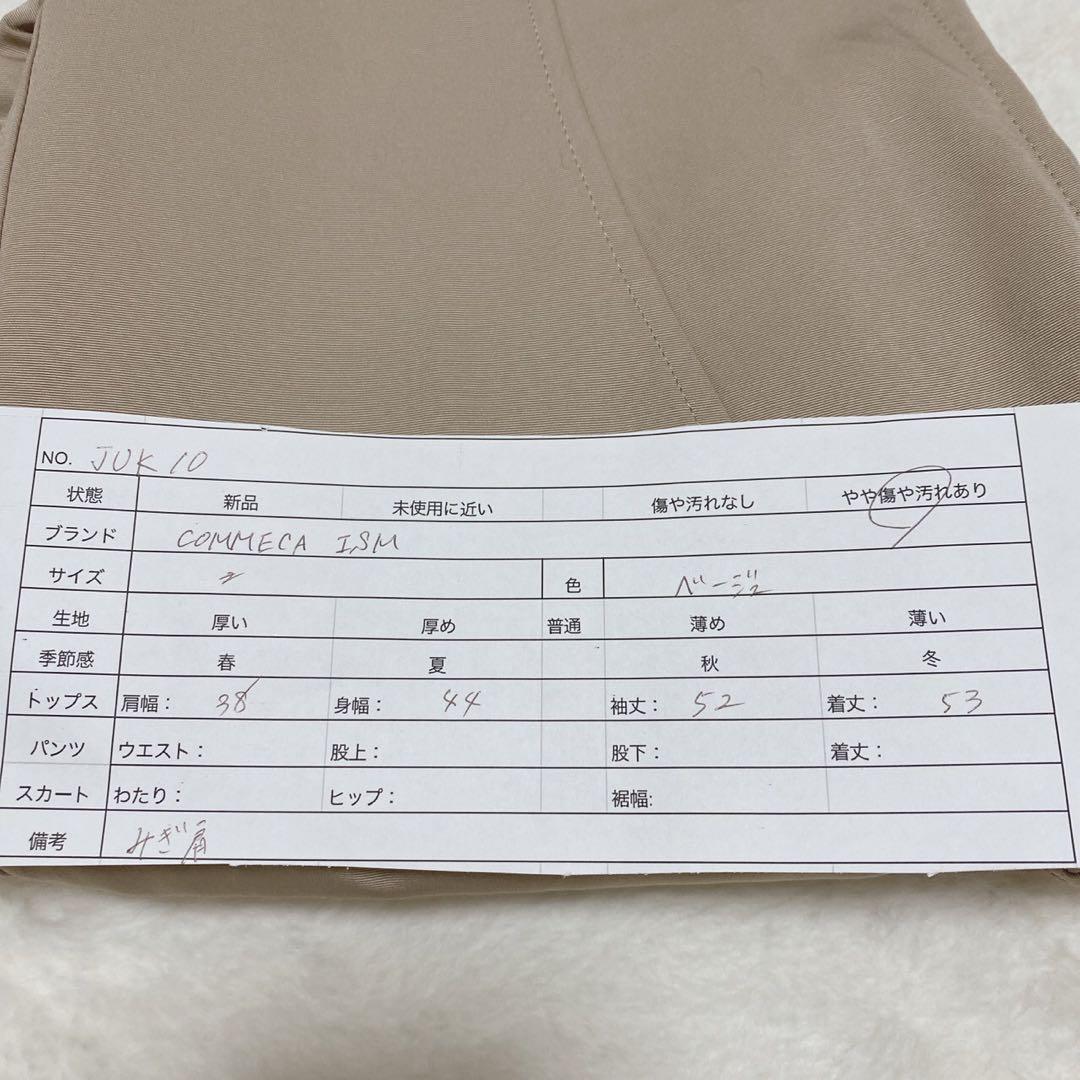 NO. JUK10
状態 新品 未使用に近い 傷や汚れなし やや傷や汚れあり
ブランド COMMECA ISM
サイズ 色 ベージュ
生地 厚い 厚め 普通 薄め 薄い
季節感 春 夏 秋 冬
トップス 肩幅: 38 身幅: 44 袖丈: 52 着丈: 53
パンツ ウエスト: 股上: 股下: 着丈:
スカート わたり: ヒップ: 裾幅:
備考 みぎ肩